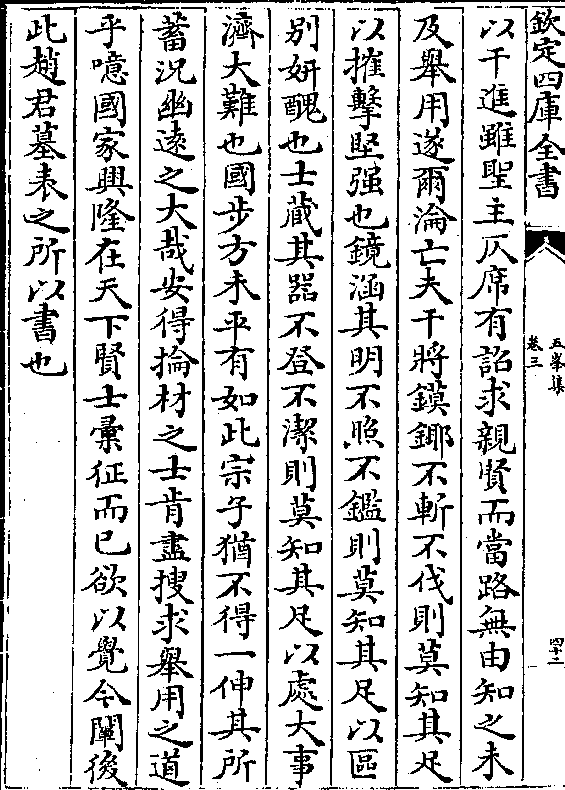 欽定四庫全書
五峯集
卷三
四十二
以干進雖聖主仄席有詔求親賢而當路無由知之未
及舉用遂爾淪亡夫干將鏌鎁不斬不伐則莫知其足
以摧擊堅强也鏡涵其明不照不鑑則莫知其足以區
别妍醜也士蔵其器不登不潔則莫知其足以處大事
濟大難也國步方未平有如此宗子猶不得一伸其所
蓄況幽遠之大哉安得掄材之士肯盡搜求舉用之道
乎噫國家興隆在天下賢士彚征而已欲以覺今闡後
此趙君墓表之所以書也